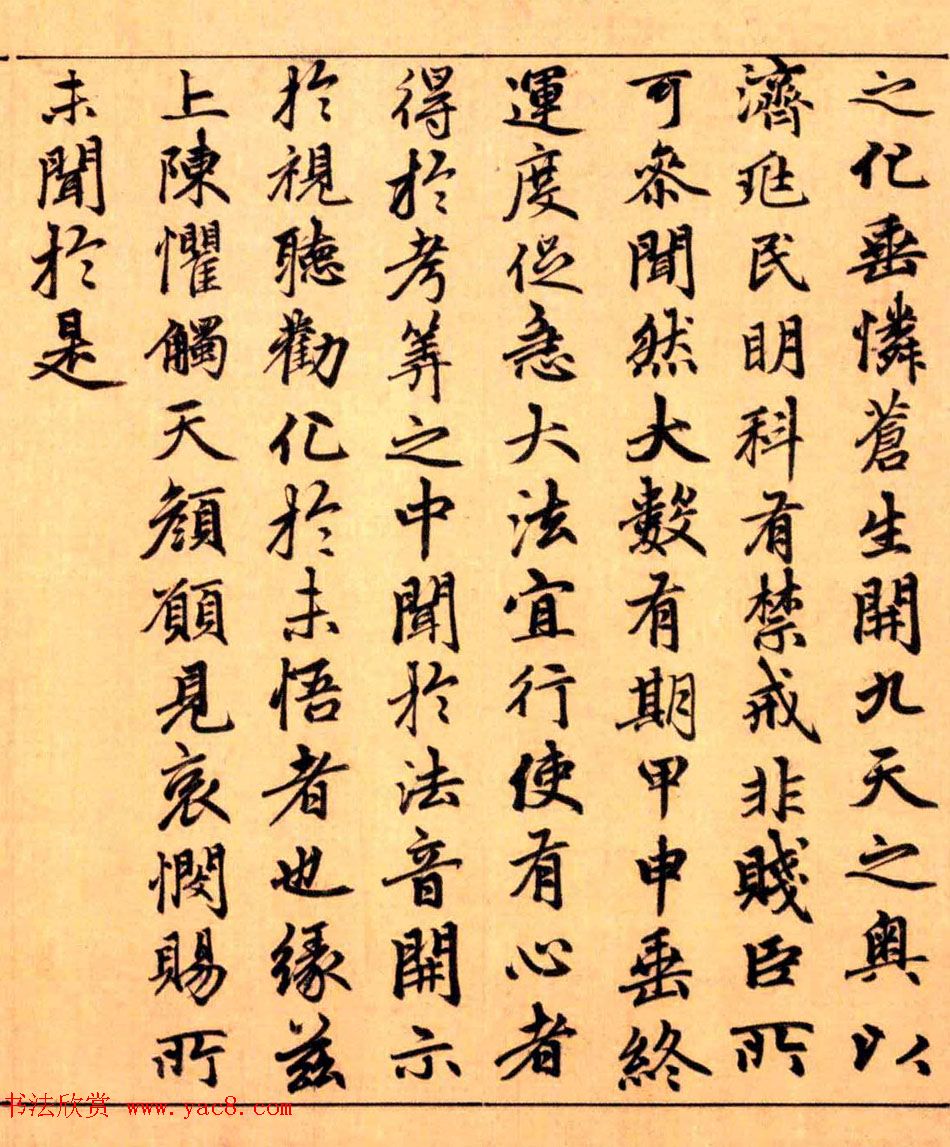 之化垂憐蒼生開九天之奧以
濟兆民明科有禁戒非賤臣所
可叅聞然大數有期甲申垂終
運度促急大法宜行使有心者
得於考筭之中聞於法音開示
於視聽勸化於未悟者也緣茲
上陳懼觸天顏願見哀憫賜所
未聞於是
书法欣赏 www.yac8.com